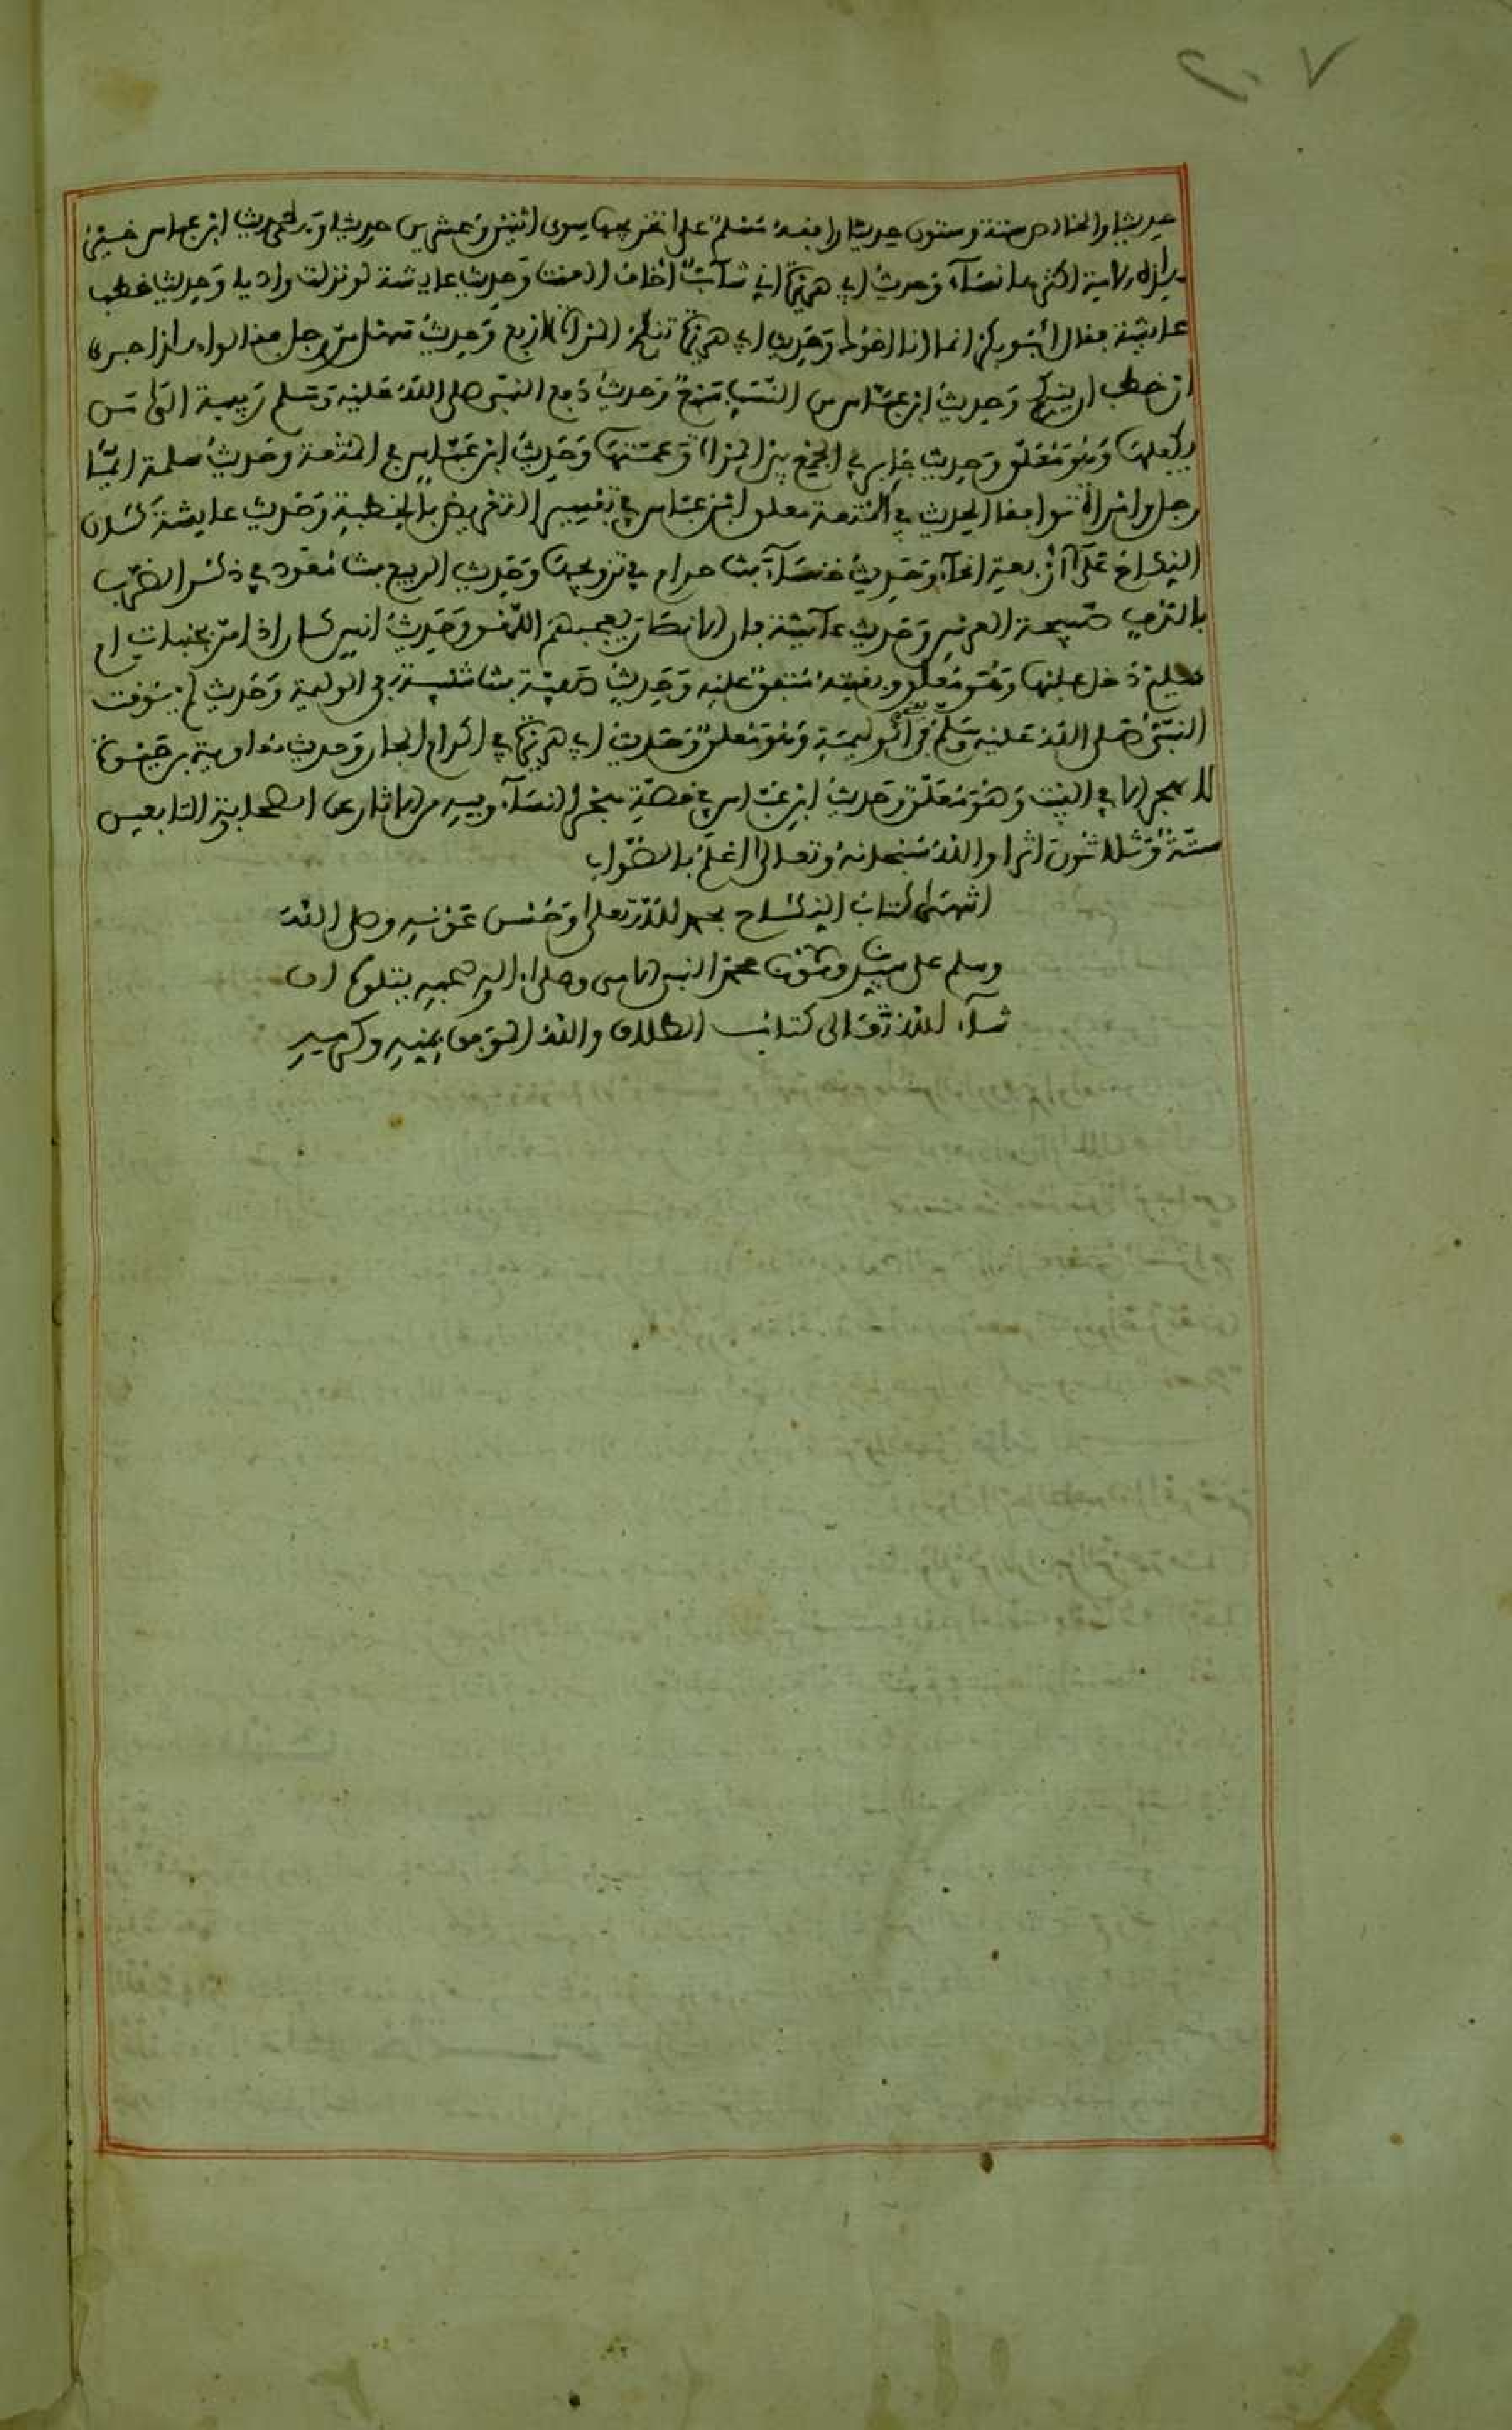 حديثا والخالص ستة وستون حديثا وافقه مسلم على تخريجها سوى اثنين وعشرين حديثا وهي حديث ابن عباس خير
هذه الامة اكثرها نساء وحديث ابي هريرة اني شاب اخاف العنت وحديث عايشة لو نزلت واديا وحديث خطب
عايشة فقال ابو بكر انما انا اخوك وحديث ابي هريرة تنكح المراة لاربع وحديث سهل مر رجل فقالوا هذا حري
ان خطب ان ينكح وحديث ابن عباس حرم من النسب سبع وحديث دفع النبي صلى الله عليه وسلم ربيبة الى من
يكفلها وهو معلق وحديث جابر في الجمع بين المراة وعمتها وحديث ابن عباس في المتعة وحديث سلمة ايما
رجل وامراة توافقا الحديث في المتعة معلق ابن عباس في تفسير التعريض بالخطبة وحديث عايشة كان
النكاح على اربعة انحاء وحديث خنساء بنت حرام في تزويجها وحديث الربيع بنت معوذ في ذكر الضرب
بالدف صبيحة العرس وحديث عائشة فان الانصار يعجبهم اللهو وحديث انس كان اذا مر بجنبات ام
سليم دخل عليها وهو معلق وبقيته متفق عليه وحديث صفية بنت شيبة في الوليمة وحديث لم يوقت
النبي صلى الله عليه وسلم في الوليمة وهو معلق وحديث ابي هريرة في اكرام الجار وحديث معاوية بن حيدة
لا تهجر الا في البيت وهو معلق وحديث ابن عباس في قصة هجر النساء وفيه من الاثار عن الصحابة والتابعين
ستة وثلاثون اثرا والله سبحانه وتعالى اعلم بالصواب
انتهى كتاب النكاح بحمد الله تعلى وحسن عونه وصلى الله
وسلم على سيدنا محمد النبي الامي وعلى اله وصحبه يتلوه ان
شاء الله تعالى كتاب الطلاق والله الموفق بمنه وكرمه